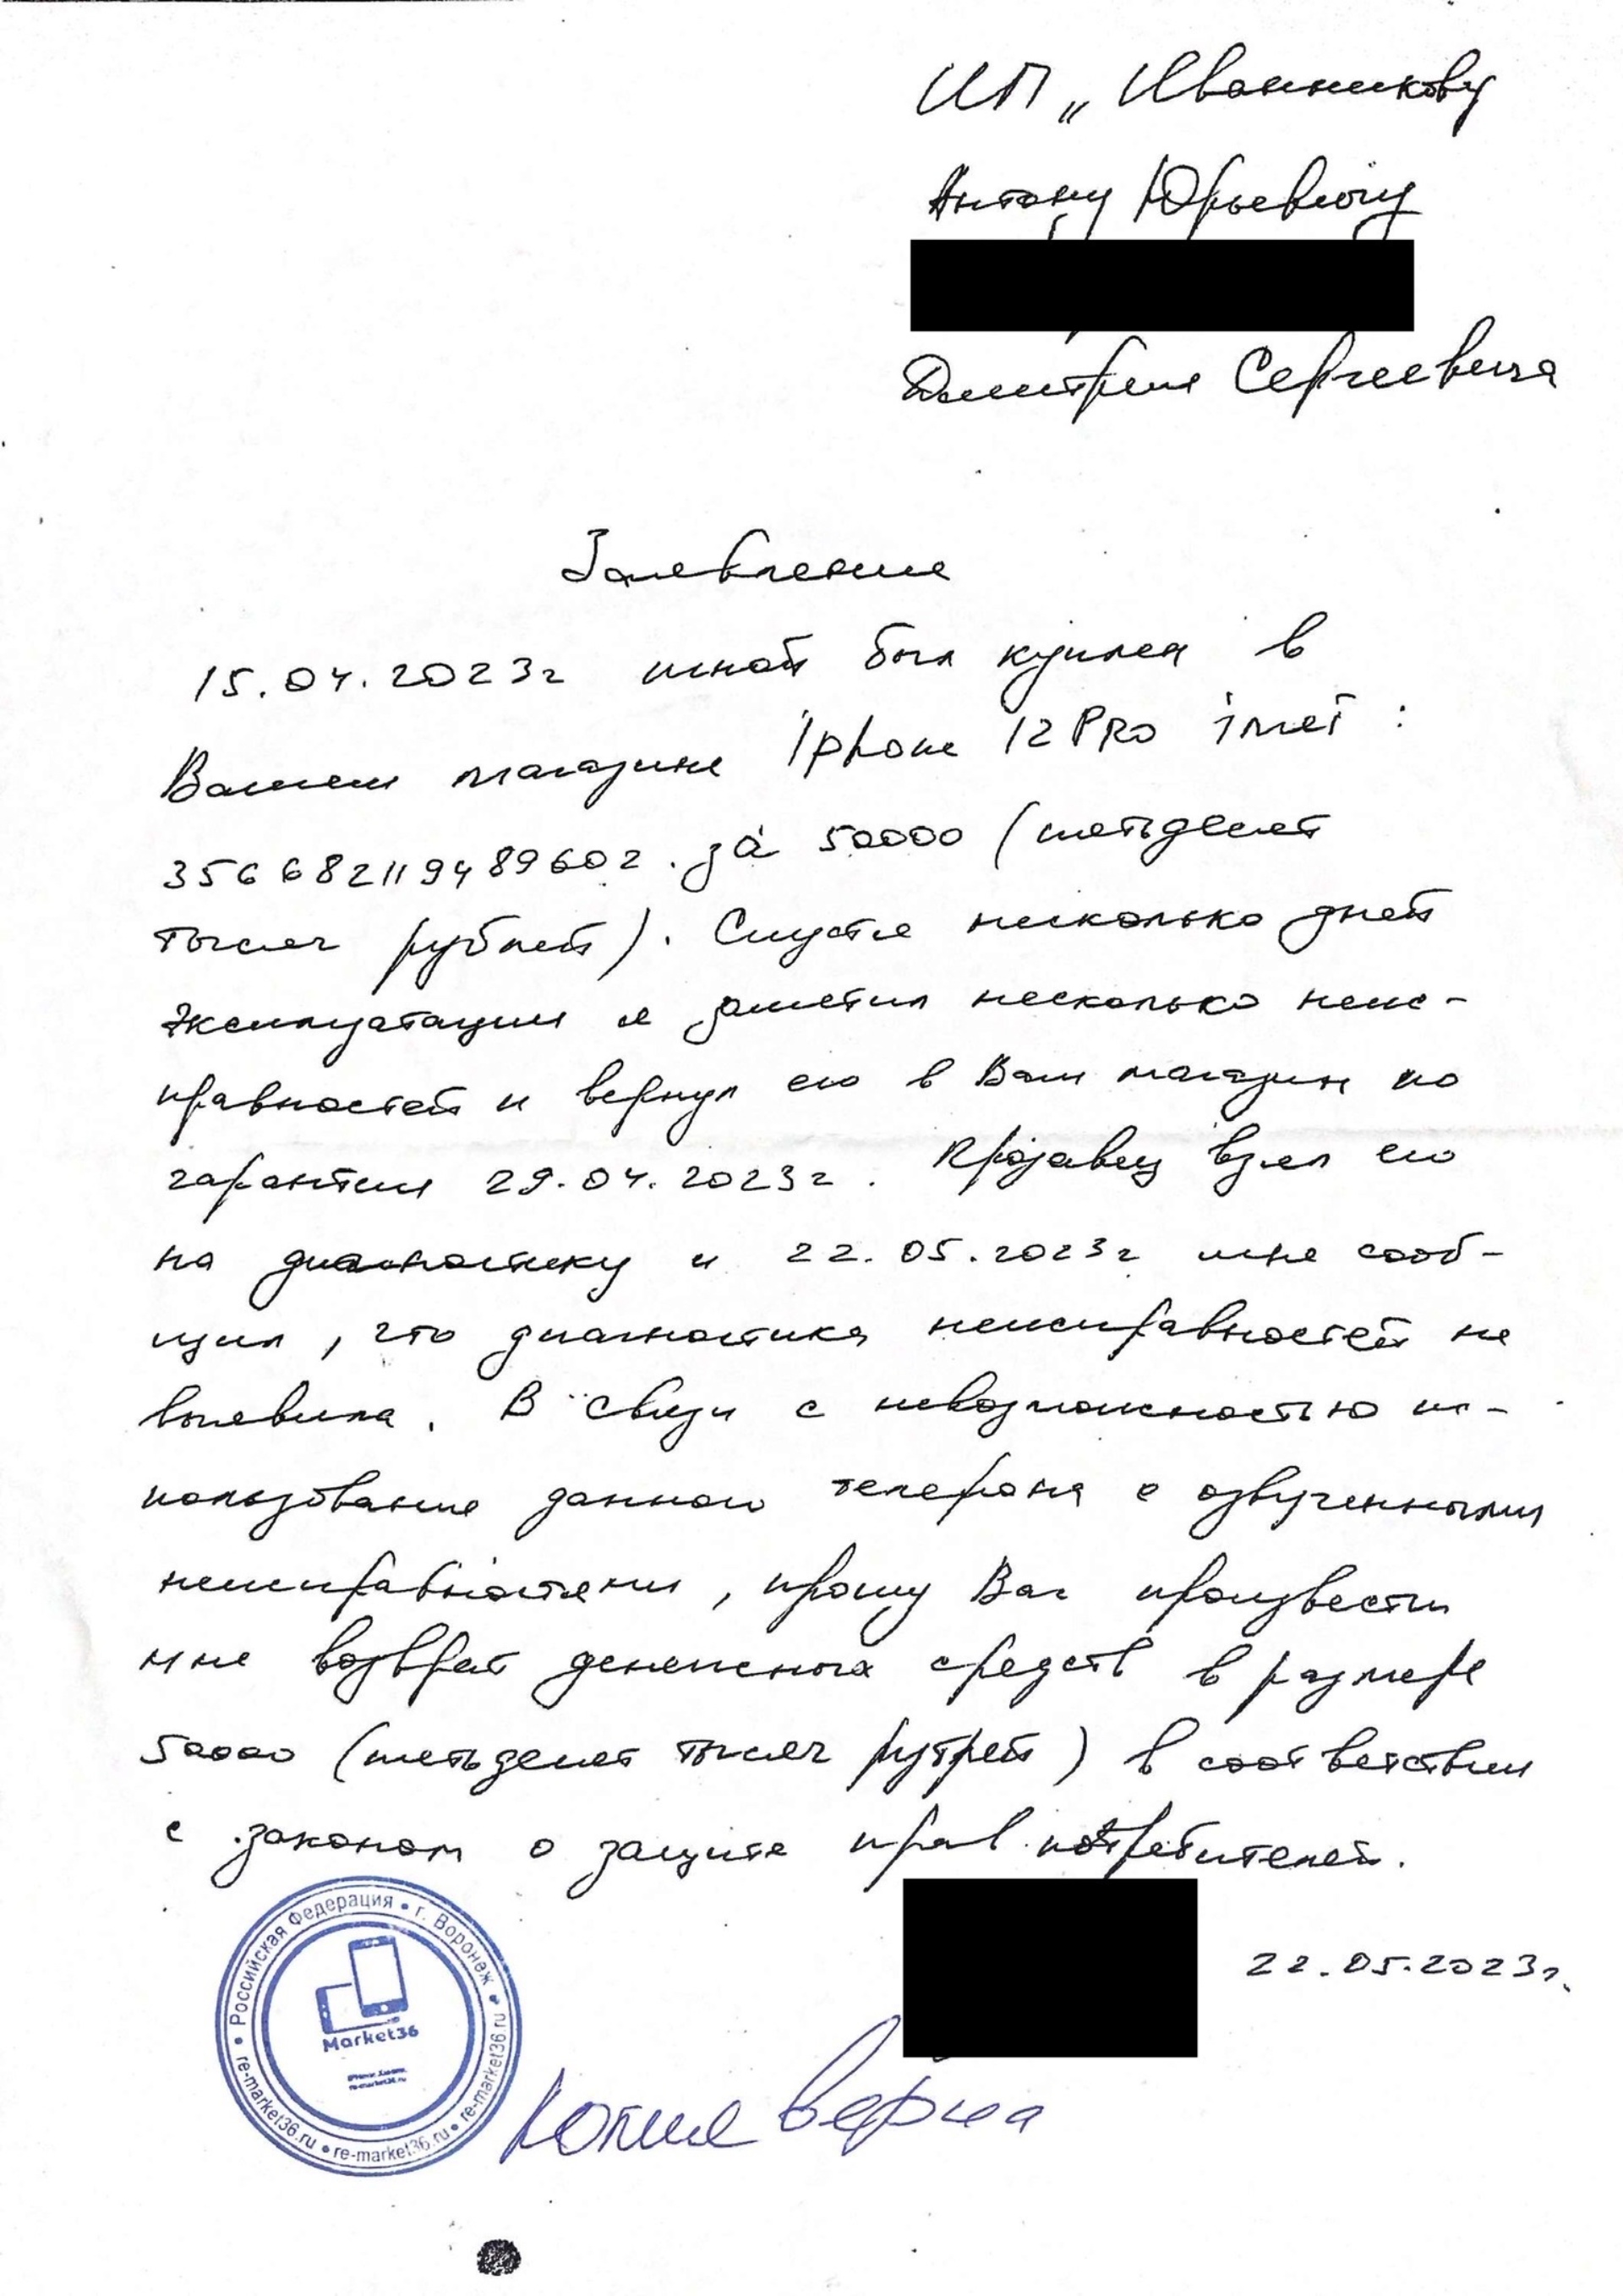 ИП „Иванникову
Антону Юрьевичу
Дмитрия Сергеевича
Заявление
15.04.2023г мной был куплен в
Вашем магазине Iphone 12 PRO imei :
356682119489602. за 50000 (пятьдесят
тысяч рублей). Спустя несколько дней
эксплуатации я заметил несколько неис-
правностей и вернул его в Ваш магазин по
гарантии 29.04.2023г. Продавец взял его
на диагностику и 22.05.2023г мне сооб-
щил, что диагностика неисправностей не
выявила. В связи с невозможностью ис-
пользование данного телефона с озвученными
неисправностями, прошу Вас произвести
мне возврат денежных средств в размере
50000 (пятьдесят тысяч рублей) в соответствии
с законом о защите прав потребителей.
22.05.2023г.
Российская Федерация • г. Воронеж • re-market36.ru • re-market36.ru • re-market36.ru •
Market36
Копия верна